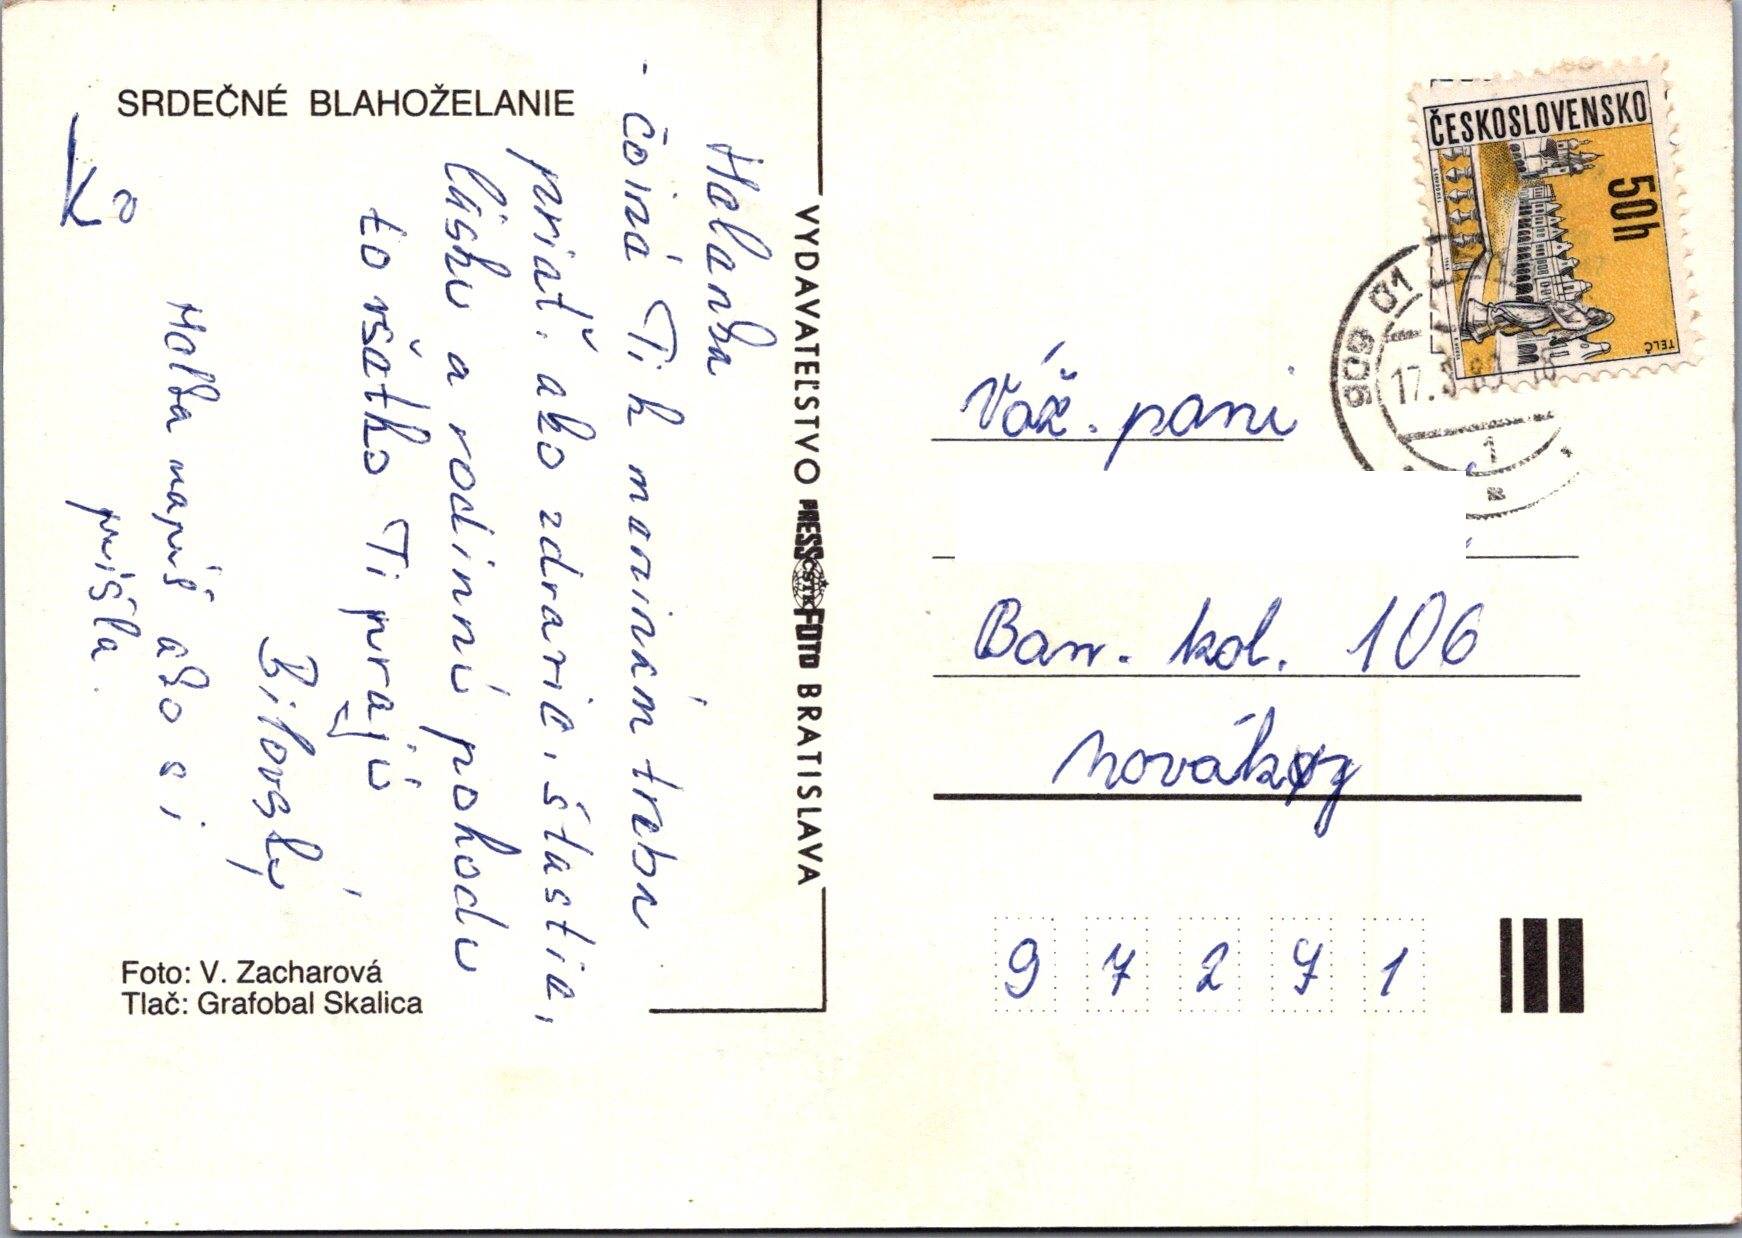 SRDEČNÉ BLAHOŽELANIE
Helenka
čo iné Ti k meninám treba
priať. ako zdravie, šťastie,
lásku a rodinnú pohodu
to všetko Ti prajú
Bilovský
Helka napíš ako si
prišla.
Foto: V. Zacharová
Tlač: Grafobal Skalica
VYDAVATEĽSTVO PRESSFOTO BRATISLAVA
ČSTK
ČESKOSLOVENSKO
50h
TELČ
908 01
17.
1
Váž. pani
Ban. kol. 106
Nováky
9 7 2 7 1